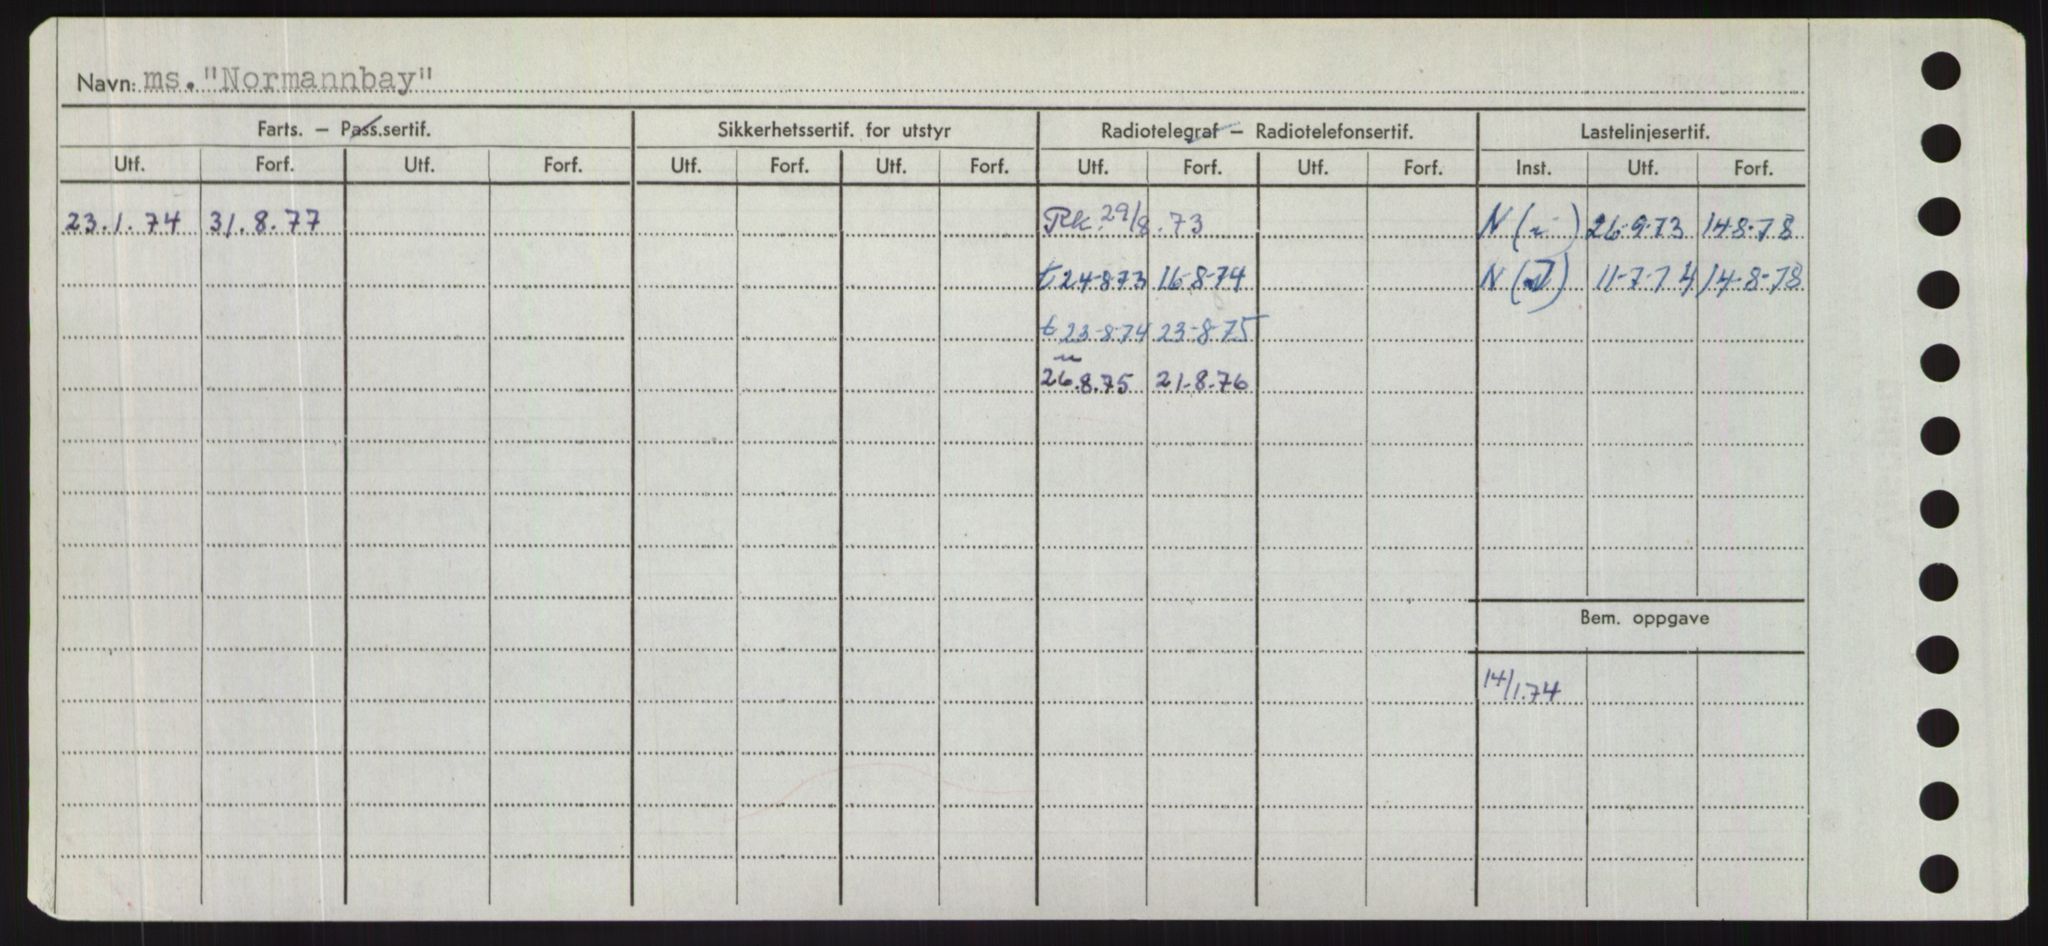 Navn: ms. "Normannbay"
Farts. — Pass.sertif. Sikkerhetssertif. for utstyr Radiotelegraf — Radiotelefonsertif. Lastelinjesertif.
Utf. Forf. Utf. Forf. Utf. Forf. Utf. Forf. Utf. Forf. Utf. Forf. Inst. Utf. Forf.
23.1.74 31.8.77 Rk. 29/8.73 N ( ) 26-9-73 14-8-78
t 24-8-73 16-8-74 N ( ) 11-7-74 14-8-78
t 23-8-74 23-8-75
26.8.75 21.8.76
Bem. oppgave
14/1.74